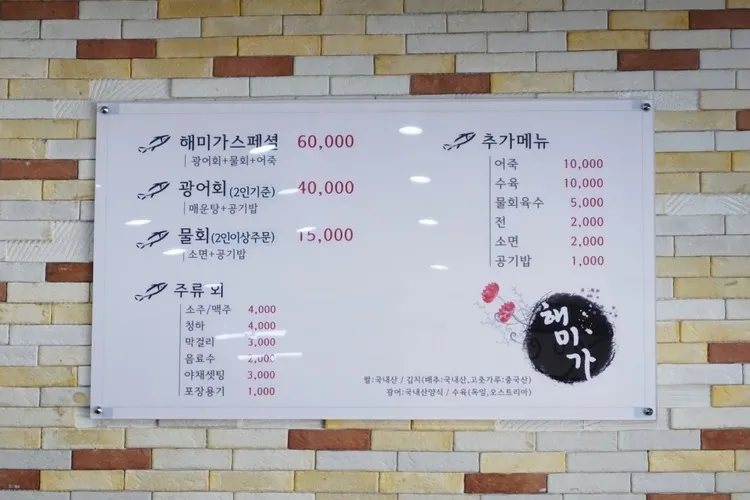 해미가스페셜 60,000
광어회+물회+어죽
광어회(2인기준) 40,000
매운탕+공기밥
물회(2인이상주문) 15,000
소면+공기밥
주류 외
소주/맥주 4,000
청하 4,000
막걸리 3,000
음료수 2,000
야채셋팅 3,000
포장용기 1,000
추가메뉴
어죽 10,000
수육 10,000
물회육수 5,000
전 2,000
소면 2,000
공기밥 1,000
해미가
쌀:국내산 / 김치(배추:국내산,고춧가루:중국산)
광어:국내산양식 / 수육(독일,오스트리아)